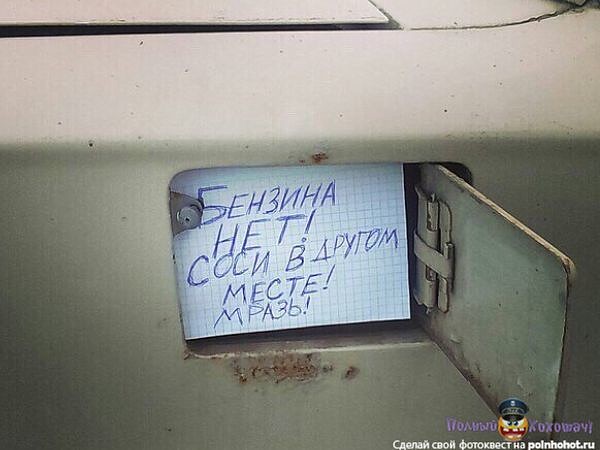 БЕНЗИНА
НЕТ!
СОСИ В ДРУГОМ
МЕСТЕ!
МРАЗЬ!
Полный Хохотач!
Сделай свой фотоквест на polnhohot.ru